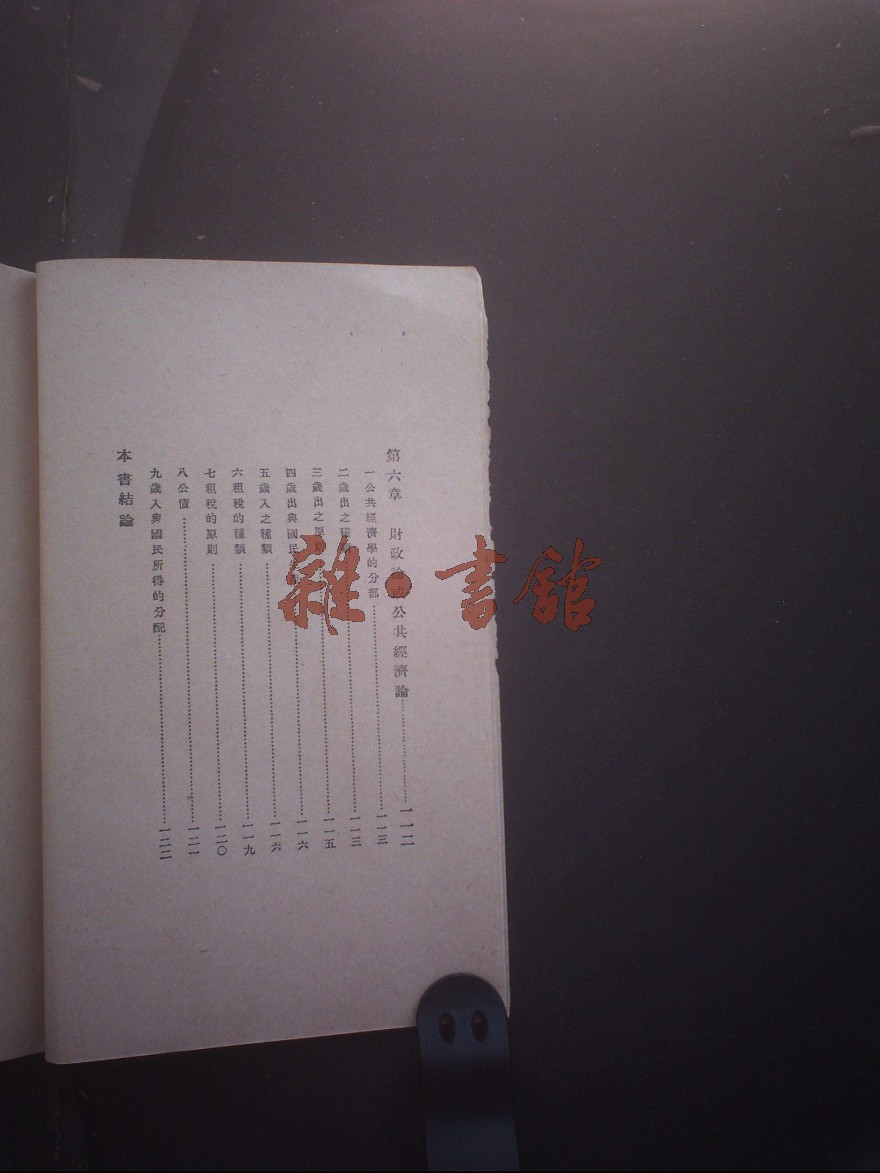 第六章 財政論或公共經濟論…………一一二
一公共經濟學的分部…………一一三
二歲出之種…………一一三
三歲出之原則…………一一五
四歲出與國民…………一一六
五歲入之種類…………一一六
六租稅的種類…………一一九
七租稅的原則…………一二〇
八公債…………一二一
九歲入與國民所得的分配…………一二二
本書結論
雜·書館